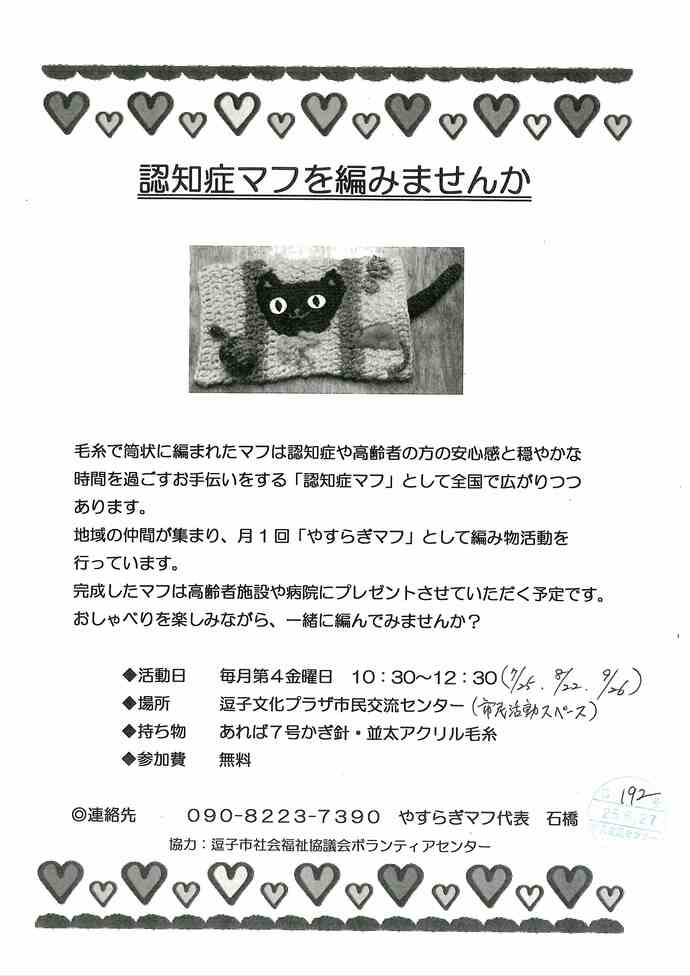 認知症マフを編みませんか
毛糸で筒状に編まれたマフは認知症や高齢者の方の安心感と穏やかな
時間を過ごすお手伝いをする「認知症マフ」として全国で広がりつつ
あります。
地域の仲間が集まり、月1回「やすらぎマフ」として編み物活動を
行っています。
完成したマフは高齢者施設や病院にプレゼントさせていただく予定です。
おしゃべりを楽しみながら、一緒に編んでみませんか？
◆活動日　毎月第4金曜日　10：30～12：30(7/25. 8/22. 9/26)
◆場所　逗子文化プラザ市民交流センター(市民活動スペース)
◆持ち物　あれば7号かぎ針・並太アクリル毛糸
◆参加費　無料
◎連絡先　090-8223-7390　やすらぎマフ代表　石橋
協力：逗子市社会福祉協議会ボランティアセンター
192
25.6.27